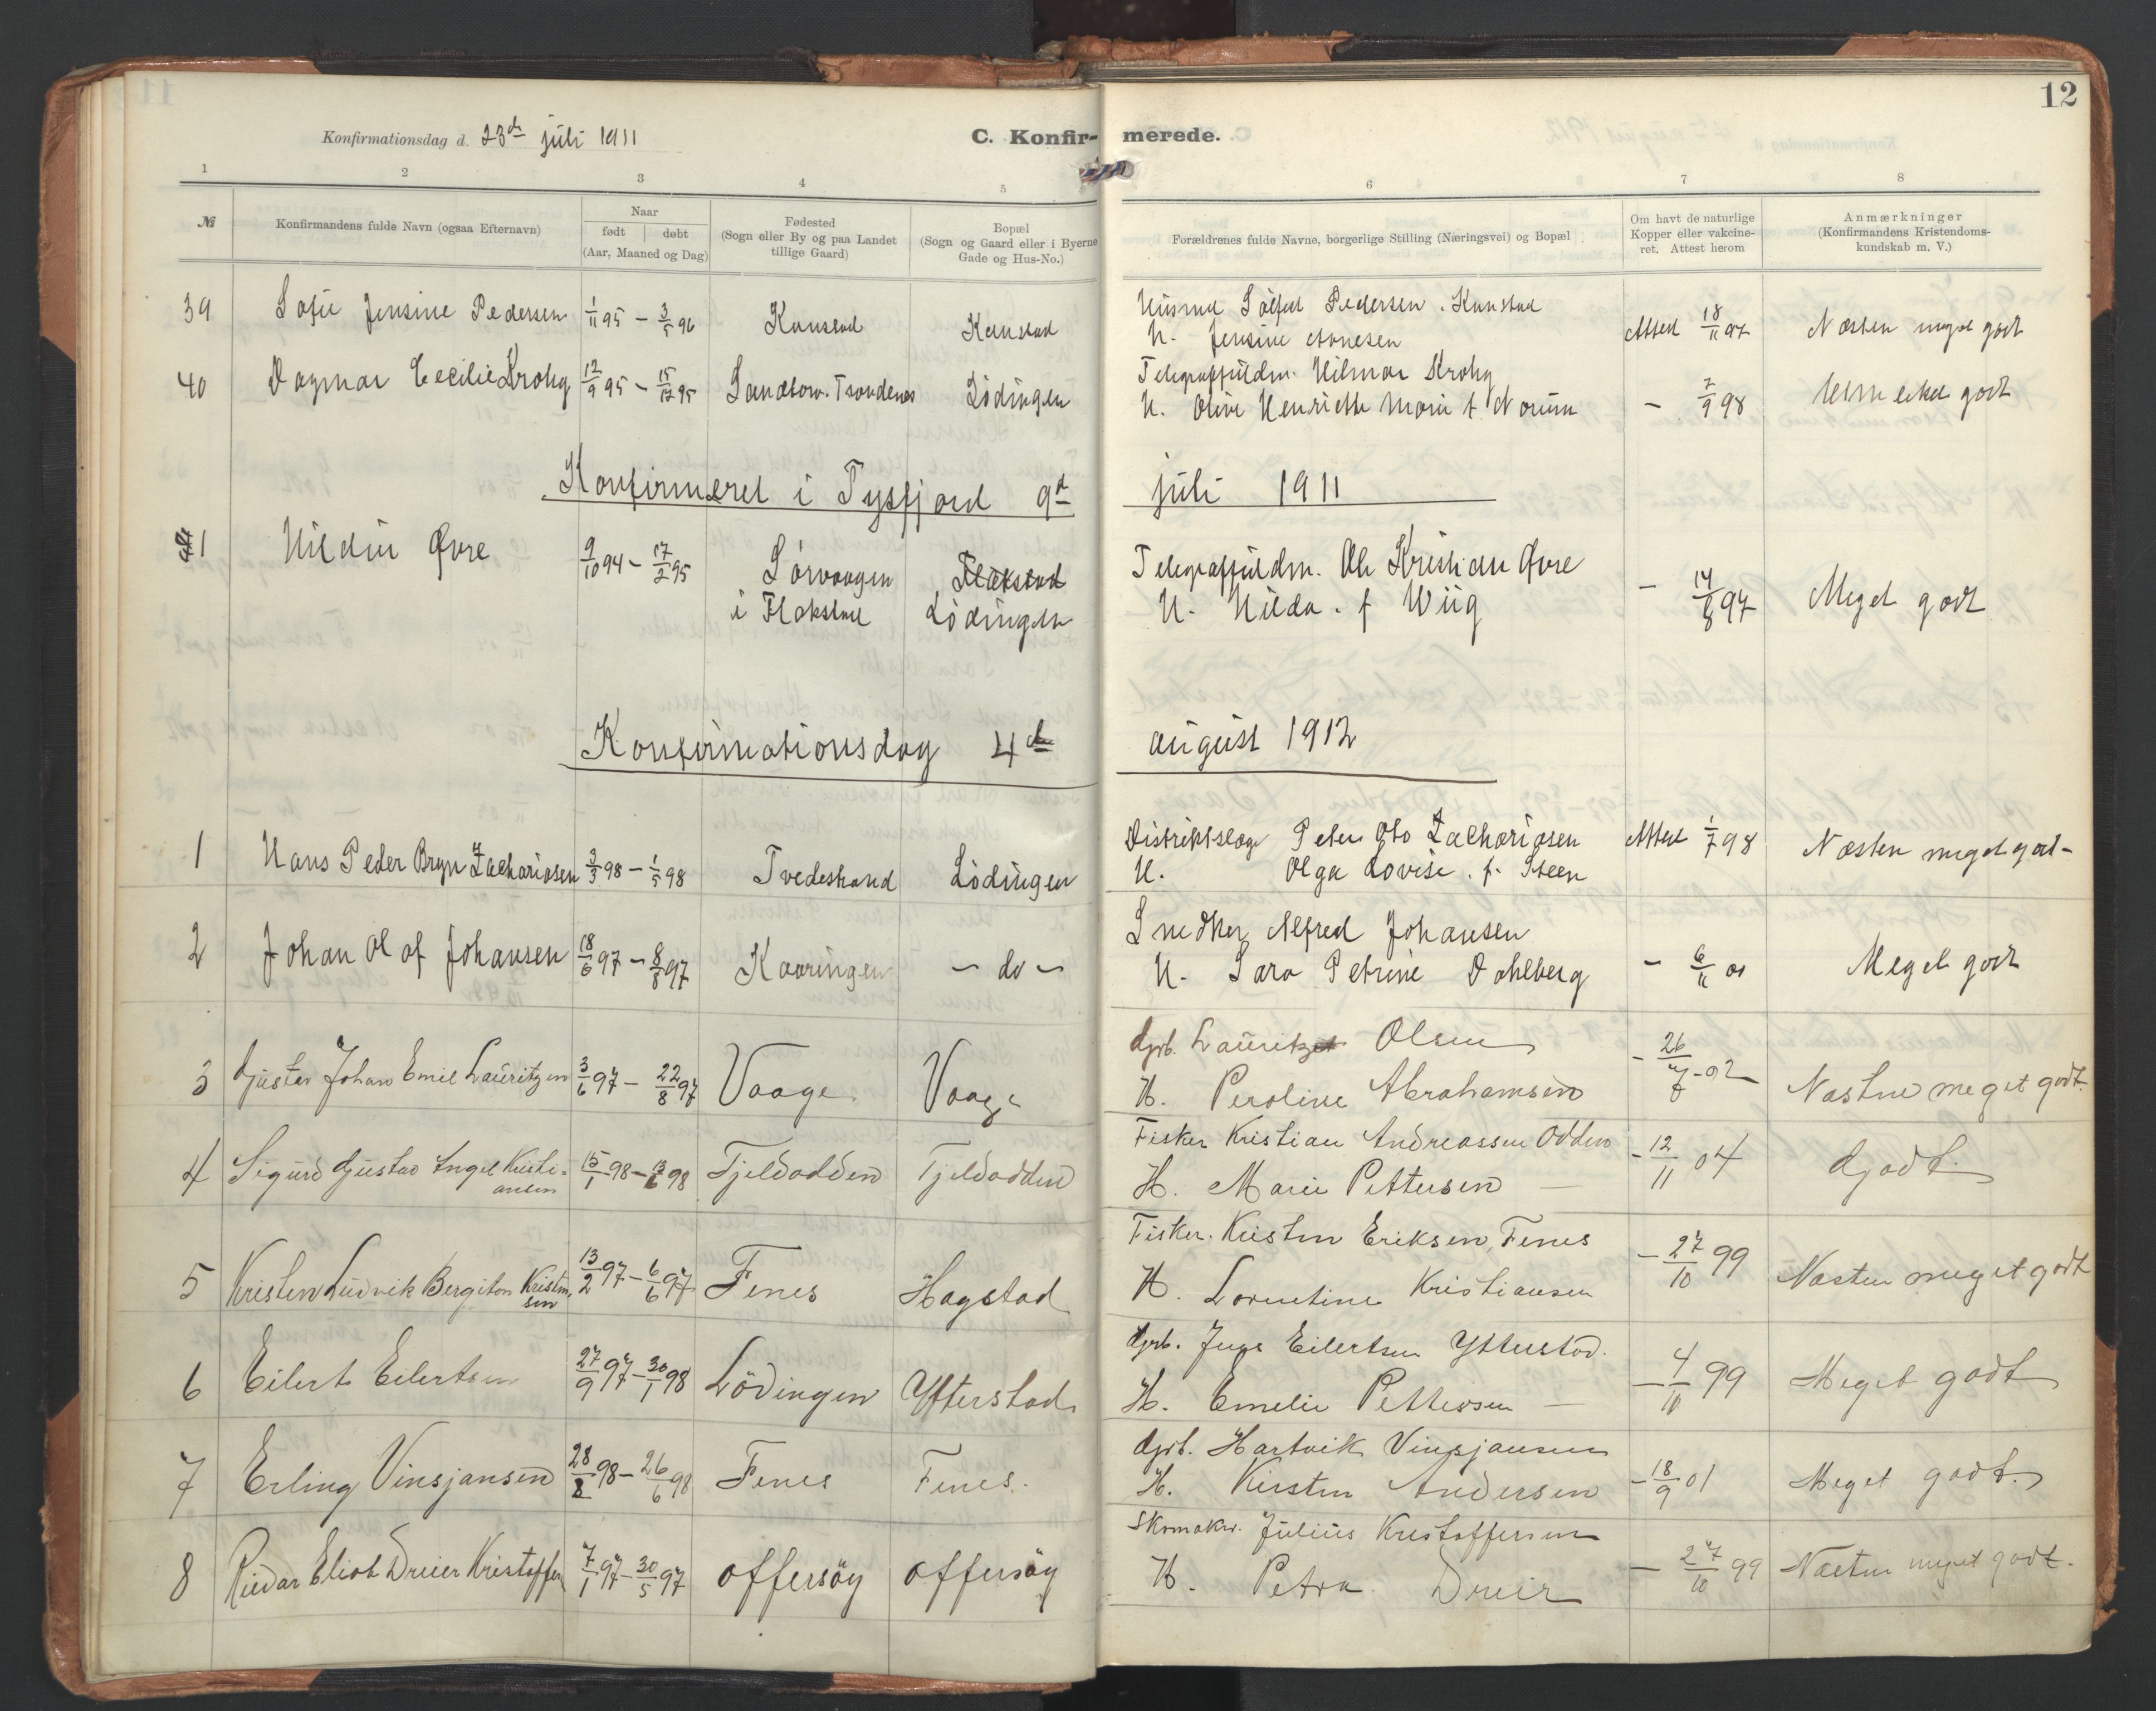 12
Konfirmationsdag d. 23de juli 1911
C. Konfir- merede.
1 2 3 4 5 6 7 8
№ Konfirmandens fulde Navn (ogsaa Efternavn) Naar født døbt (Aar, Maaned og Dag) Fødested (Sogn eller By og paa Landet tillige Gaard) Bopæl (Sogn og Gaard eller i Byerne Gade og Hus-No.) Forældrenes fulde Navne, borgerlige Stilling (Næringsvei) og Bopæl Om havt de naturlige Kopper eller vakcineret. Attest herom Anmærkninger (Konfirmandens Kristendomskundskab m. V.)
39 Sofie Jensine Pedersen 1/11 95 – 3/5 96 Kanstad Kanstad Husmd Sølfest Pedersen. Kanstad Attest 18/11 97 Næsten meget godt
H. Jensine Arnesen
40 Dagmar Cecilie Krohg 12/9 95 – 15/12 95 Sandtorv. Trondenes Lødingen Telegraffuldm. Hilmar Krohg – 7/9 98 Udmerket godt
H. Oline Henriette Marie f. Norum
Konfirmeret i Tysfjord 9d juli 1911
1 Hildur Øvre 9/10 94 – 17/2 95 Sørvaagen Flakstad Telegraffuldm. Ole Kristian Øvre – 14/8 97 Meget godt
i Flakstad Lødingen H. Hilda. f Wiig
Konfirmationsdag 4de august 1912
1 Hans Peder Bryn Zachariasen 3/3 98 – 1/5 98 Tvedestrand Lødingen Distriktslæge Peter Otto Zachariasen Attest 1/7 98 Næsten meget godt-
H. Olga Lovise. f. Steen
2 Johan Olaf Johansen 18/6 97 – 8/8 97 Kaaringen – do – Snedker Alfred Johansen – 6/11 01 Meget godt
H. Sara Petrine Dahlberg
3 Gustav Johan Emil Lauritzen 3/6 97 – 22/8 97 Vaage Vaage Gjrb. Lauritz Olsen – 26/7-02 Næsten meget godt.
H. Peroline Abrahamsen
4 Sigurd Gustav Ingel Kristiansen 15/1 98 – 12/6 98 Tjeldodden Tjeldodden Fisker Kristian Andreassen Odden – 12/11 04 Godt.
H. Marie Pettersen —
5 Kristen Ludvik Bergiton Kristensen 13/2 97 – 6/6 97 Fenes Hagstad Fisker. Kristen Eriksen, Fenes – 27/10 99 Næsten meget godt
H. Lorentine Kristiansen
6 Eilert Eilertsen 27/9 97 – 30/1 98 Lödingen Ytterstad Gjrb. Jens Eilertsen Ytterstad. – 4/10 99 Meget godt
H. Emelie Pettersen —
7 Erling Vinsjansen 28/2 98 – 26/6 98 Fenes Fenes. Gjrb. Hartvik Vinsjansen – 18/9 01 Meget godt.
H. Kirsten Andersen
8 Reidar Eliot Dreier Kristoffer 7/1 97 – 30/5 97 Offersöy Offersöy Skomaker. Julius Kristoffersen – 27/10 99 Næsten meget godt.
H. Petra Dreier